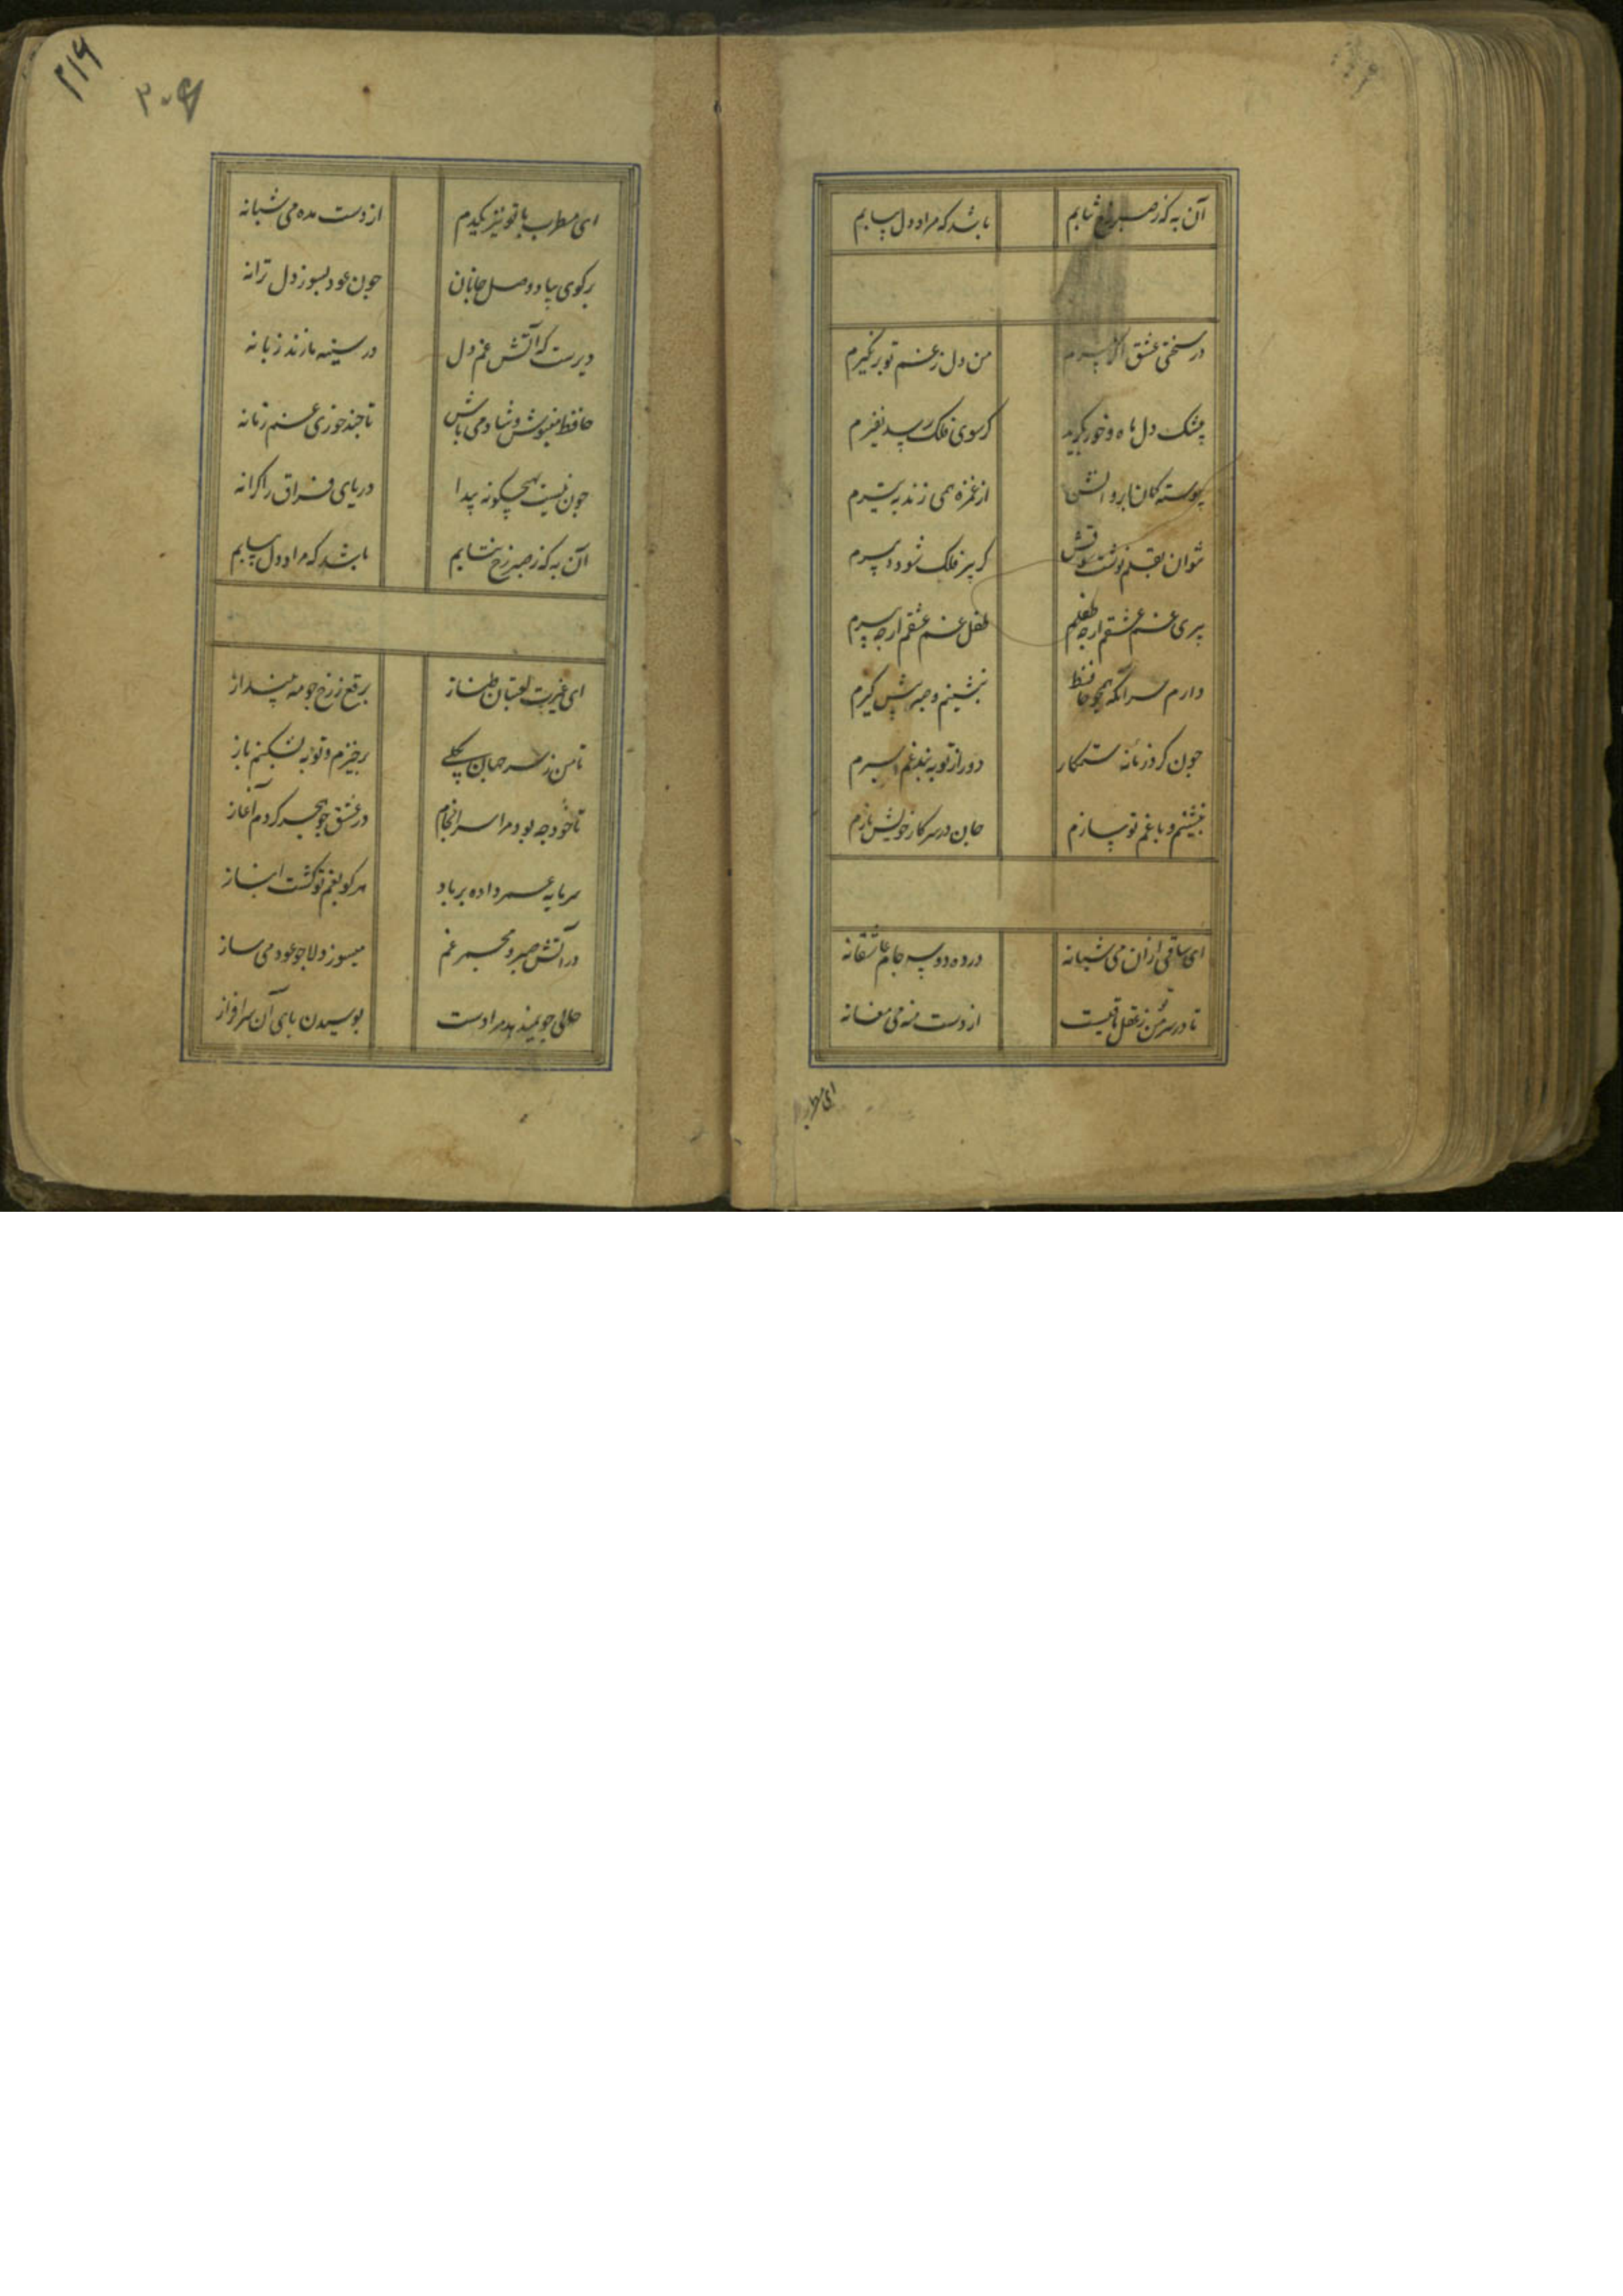 آن به که ز صبر رخ نتابم باشد که مراد دل بیابم
در سختی عشق اگر بمیرم من دل ز غم تو برنگیرم
دل ماه و خور بگرید کز سوی فلک رسد نفیرم
پیوسته کمان ابروانش از غمزه همی زند به تیرم
نتوان بقلم نوشت شوقش گر پیر فلک شود دبیرم
پیری غم عشقم ارچه طفلم طفل غم عشقم ارچه پیرم
دارم سر آنکه همچو حافظ بنشینم و صبر پیش گیرم
چون کرد زمانه ستمکار دور از تو به بند غم اسیرم
بنشینم و با غم تو سازم جان در سر کار خویش بازم
ای ساقی ازان می شبانه در ده دو سه جام عاشقانه
تا در سر من ز عقل باقیست از دست منه می مغانه
ای مطرب
۲۱۶
۲۰۶
ای مطرب ما تو نیز یکدم از دست مده می شبانه
برگوی بیاد وصل جانان چون عود بسوز دل ترانه
دیرست که آتش غم دل در سینه ما زند زبانه
حافظ مینوش و شاد می باش تا چند خوری غم زمانه
چون نیست بهیچ گونه پیدا دریای فراق را کرانه
آن به که ز صبر رخ نتابم باشد که مراد دل بیابم
ای غیرت لعبتان طناز برقع ز رخ چو مه بینداز
تا من ز سر جهان بکلی برخیزم و توبه بشکنم باز
تا خود چه بود مرا سرانجام در عشق چو هجر کردم آغاز
سرمایه عمر داده بر باد هر کو بغم تو گشت انباز
در آتش صبر و مجمر غم میسوز دلا چو عود و می ساز
حالی چو نمیدهد مرا دست بوسیدن پای آن سرافراز